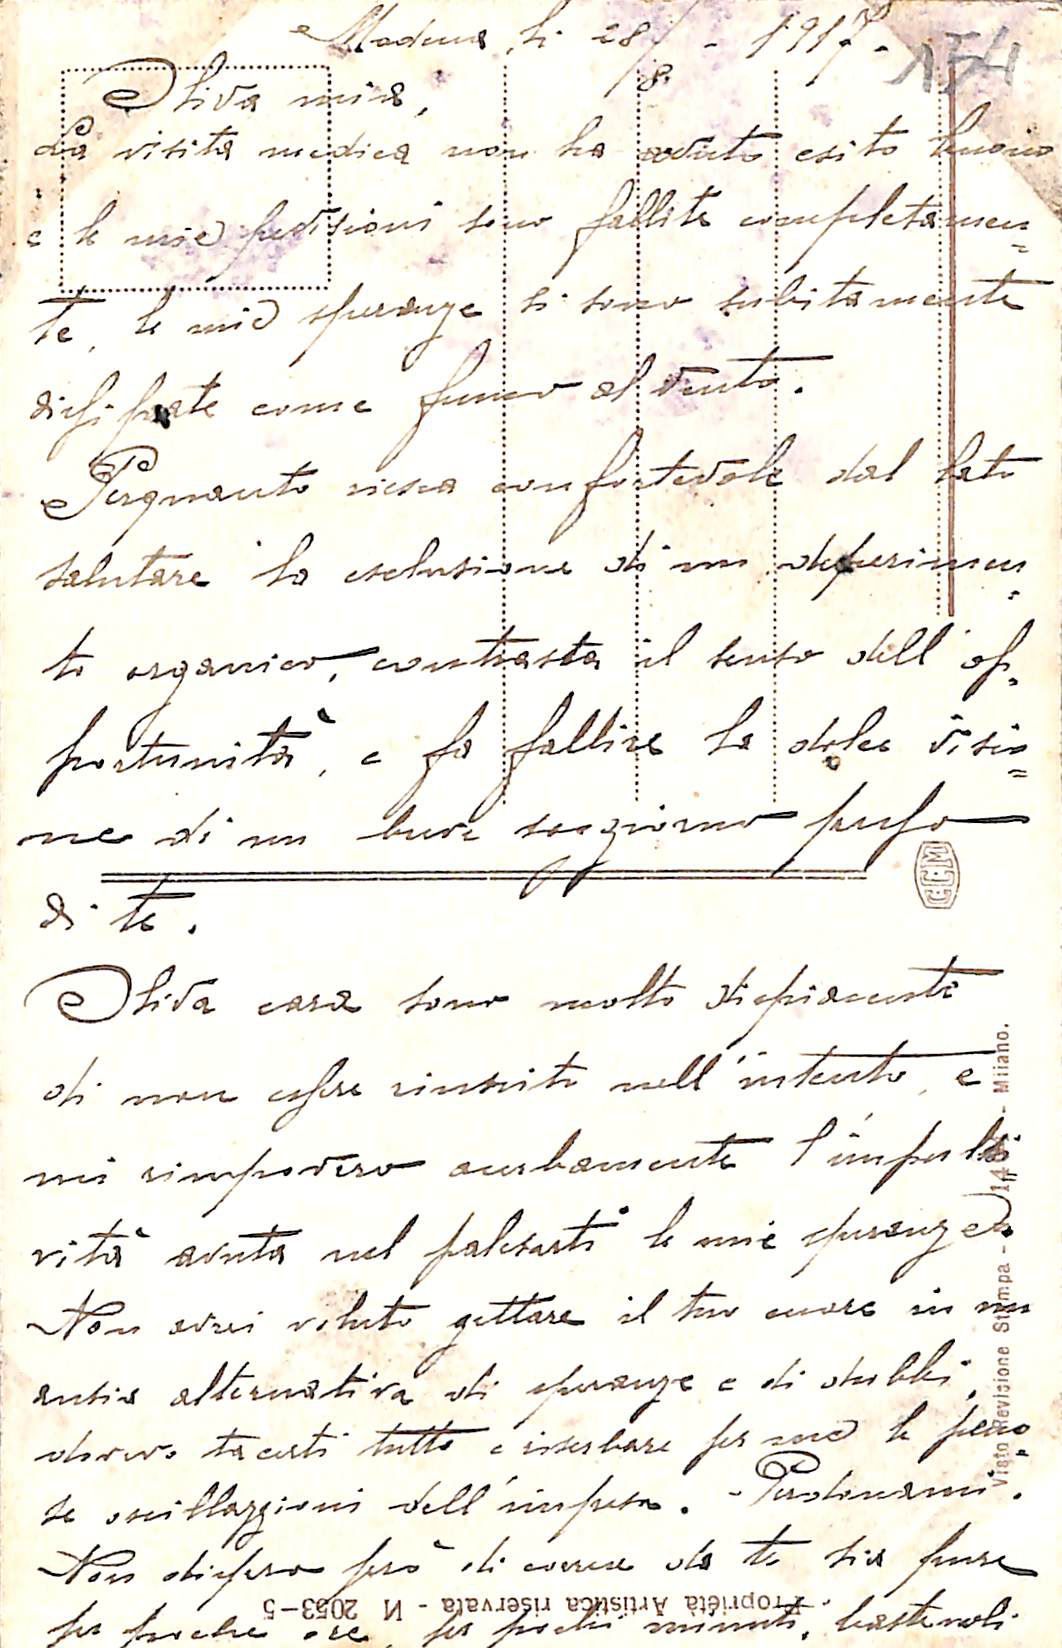 Modena, li 28/8 - 1917 -
154
Oliva mia,
La visita medica non ha avuto esito buono
e le mie previsioni sono fallite completamen=
te, le mie speranze si sono subitamente
dissipate come fumo al vento.
Perquanto riesca confortevole dal lato
salutare la esclusione di un deperimen=
to organico, contrasta il senso dell'op=
portunità, e fa fallire la dolce visio=
ne di un breve soggiorno presso
di te.
Oliva cara sono molto dispiacente
di non essere riuscito nell'intento, e
mi rimprovero acerbamente l'impulsi
vità avuta nel palesarti le mie speranze.
Non avrei voluto gettare il tuo cuore in un
ansia alternativa di speranze e di dubbi,
dovevo tacerti tutto e riserbare per me le peno=
se oscillazzioni dell'impresa. - Perdonami.
Non dispero però di correre da te sia pure
per poche ore, per pochi minuti,
CCM
Visto Revisione Stampa - - Milano.
Proprietà Artistica riservata - N 2053-5